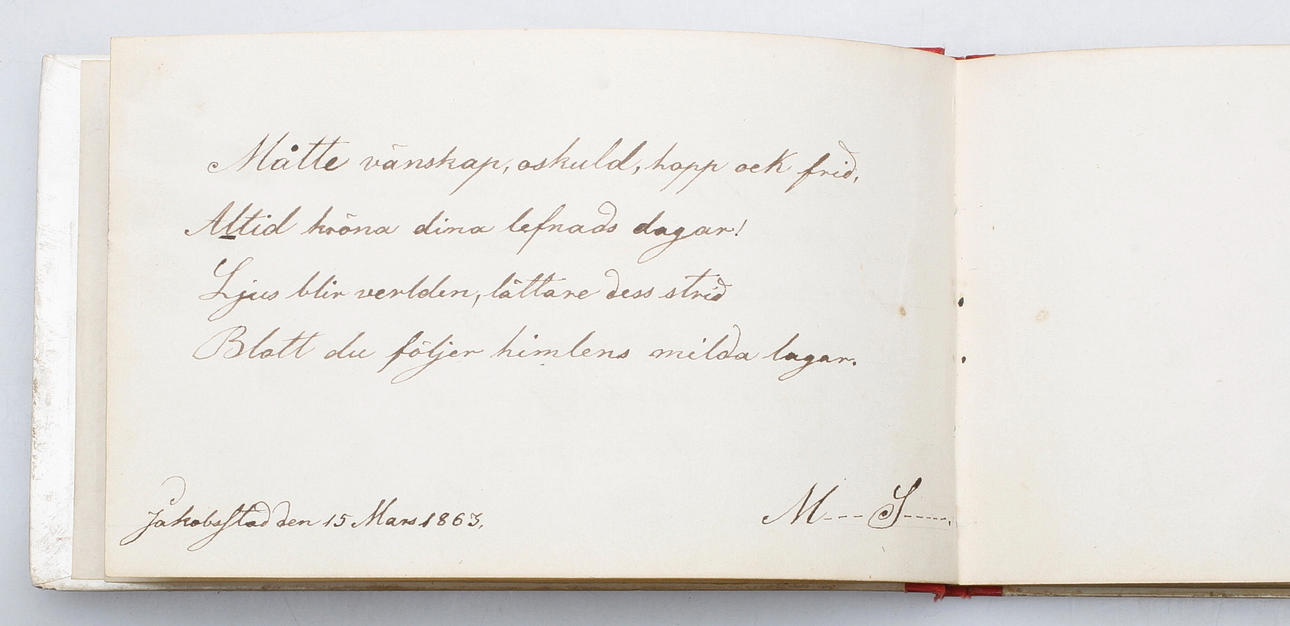 Måtte vänskap, oskuld, hopp ock frid,
Altid kröna dina lefnads dagar!
Ljus blir verlden, lättare dess strid
Blott du följer himlens milda lagar.
Jakobsstad den 15 Mars 1863.
M--- S-----.